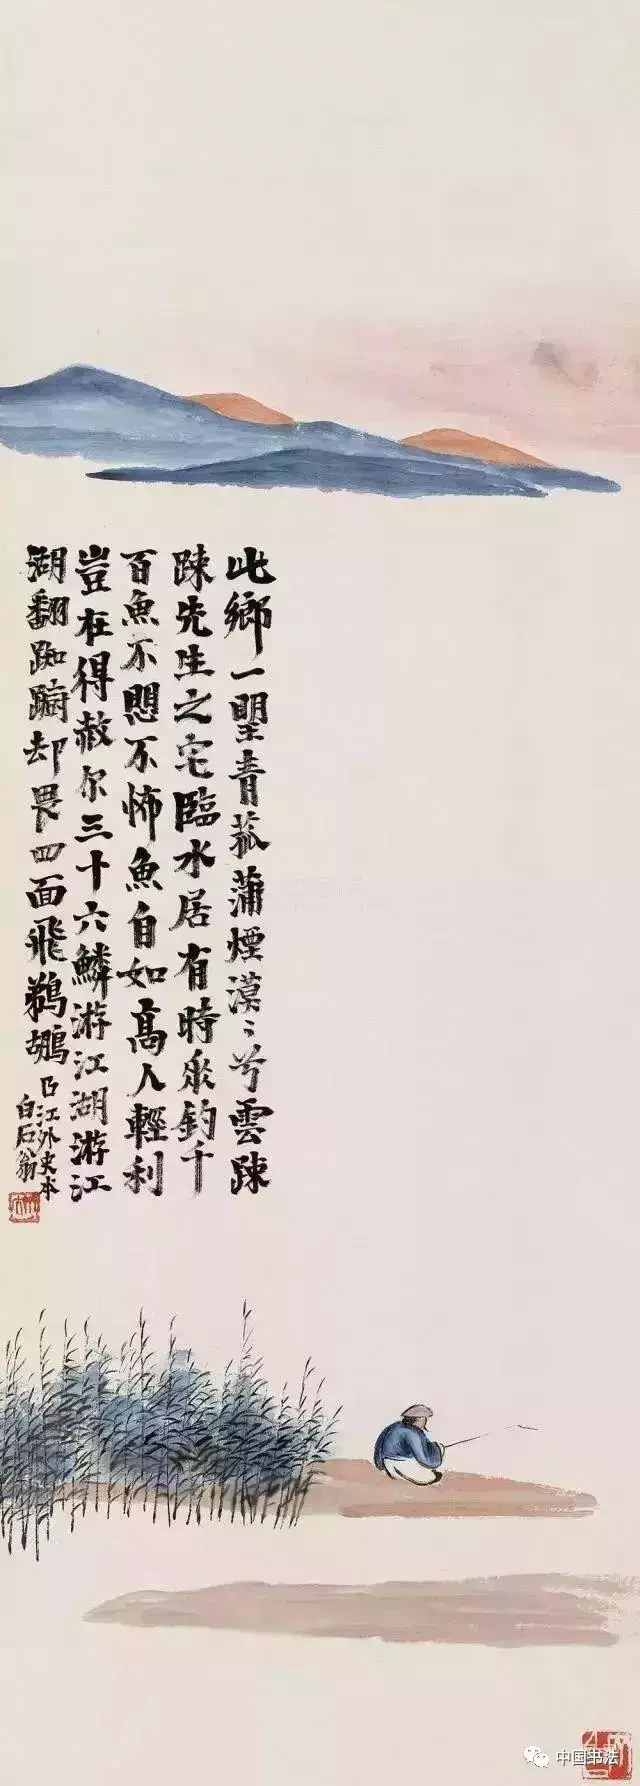 此鄉一望青菰蒲煙漠〻兮雲踈
踈先生之宅臨水居有時垂釣千
百魚不愳不怖魚自如高人輕利
豈在得赦尔三十六鱗游江湖游江
湖翻踟躕却畏四面飛鵜鶘
曲江外史本
白石翁
中国书法